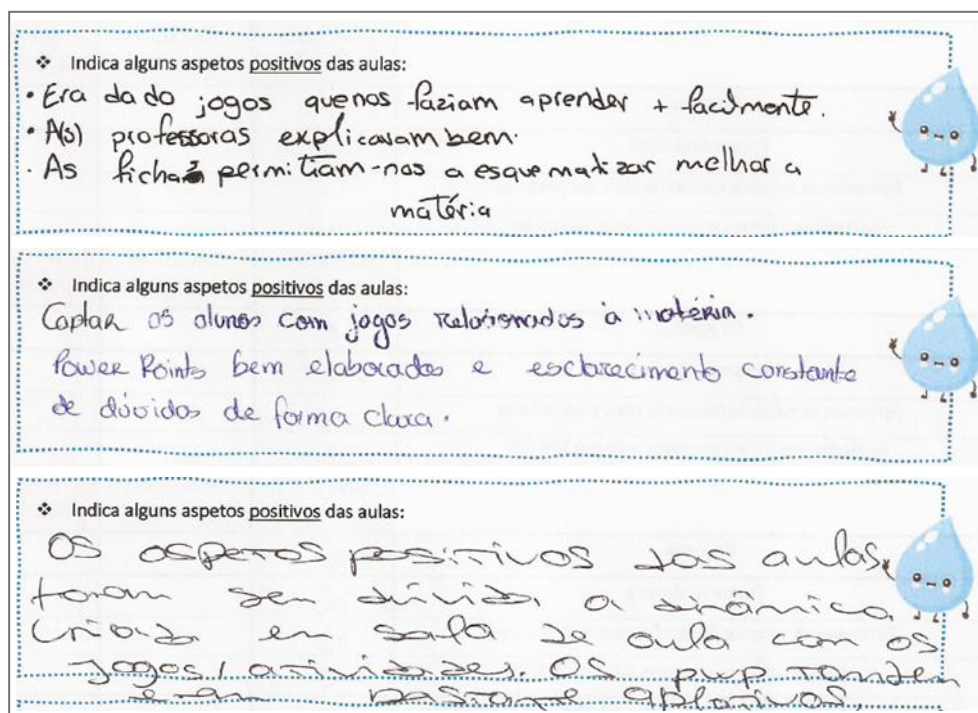 ❖ Indica alguns aspetos positivos das aulas:
• Era dado jogos que nos faziam aprender + facilmente.
• A(s) professoras explicavam bem.
• As fichas permitiam-nos a esquematizar melhor a
matéria
❖ Indica alguns aspetos positivos das aulas:
Captar os alunos com jogos relacionados à matéria.
Power Points bem elaborados e esclarecimento constante
de dúvidas de forma clara.
❖ Indica alguns aspetos positivos das aulas:
Os aspetos positivos das aulas,
foram sem dúvida, a dinâmica,
criada em sala de aula com os
jogos/atividades. Os pwp também
eram bastante apelativos.